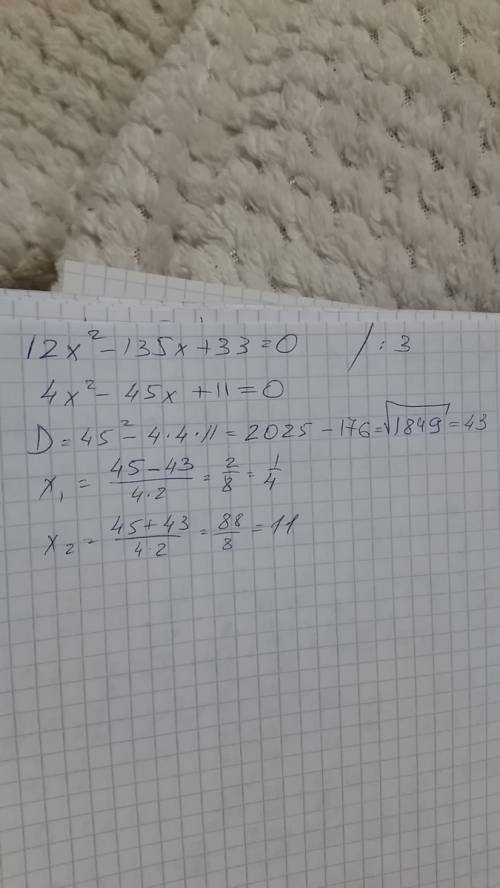 12x² - 135x + 33 = 0 / : 3
4x² - 45x + 11 = 0
D = 45² - 4·4·11 = 2025 - 176 = √1849 = 43
x₁ = (45 - 43)/(4·2) = 2/8 = 1/4
x₂ = (45 + 43)/(4·2) = 88/8 = 11